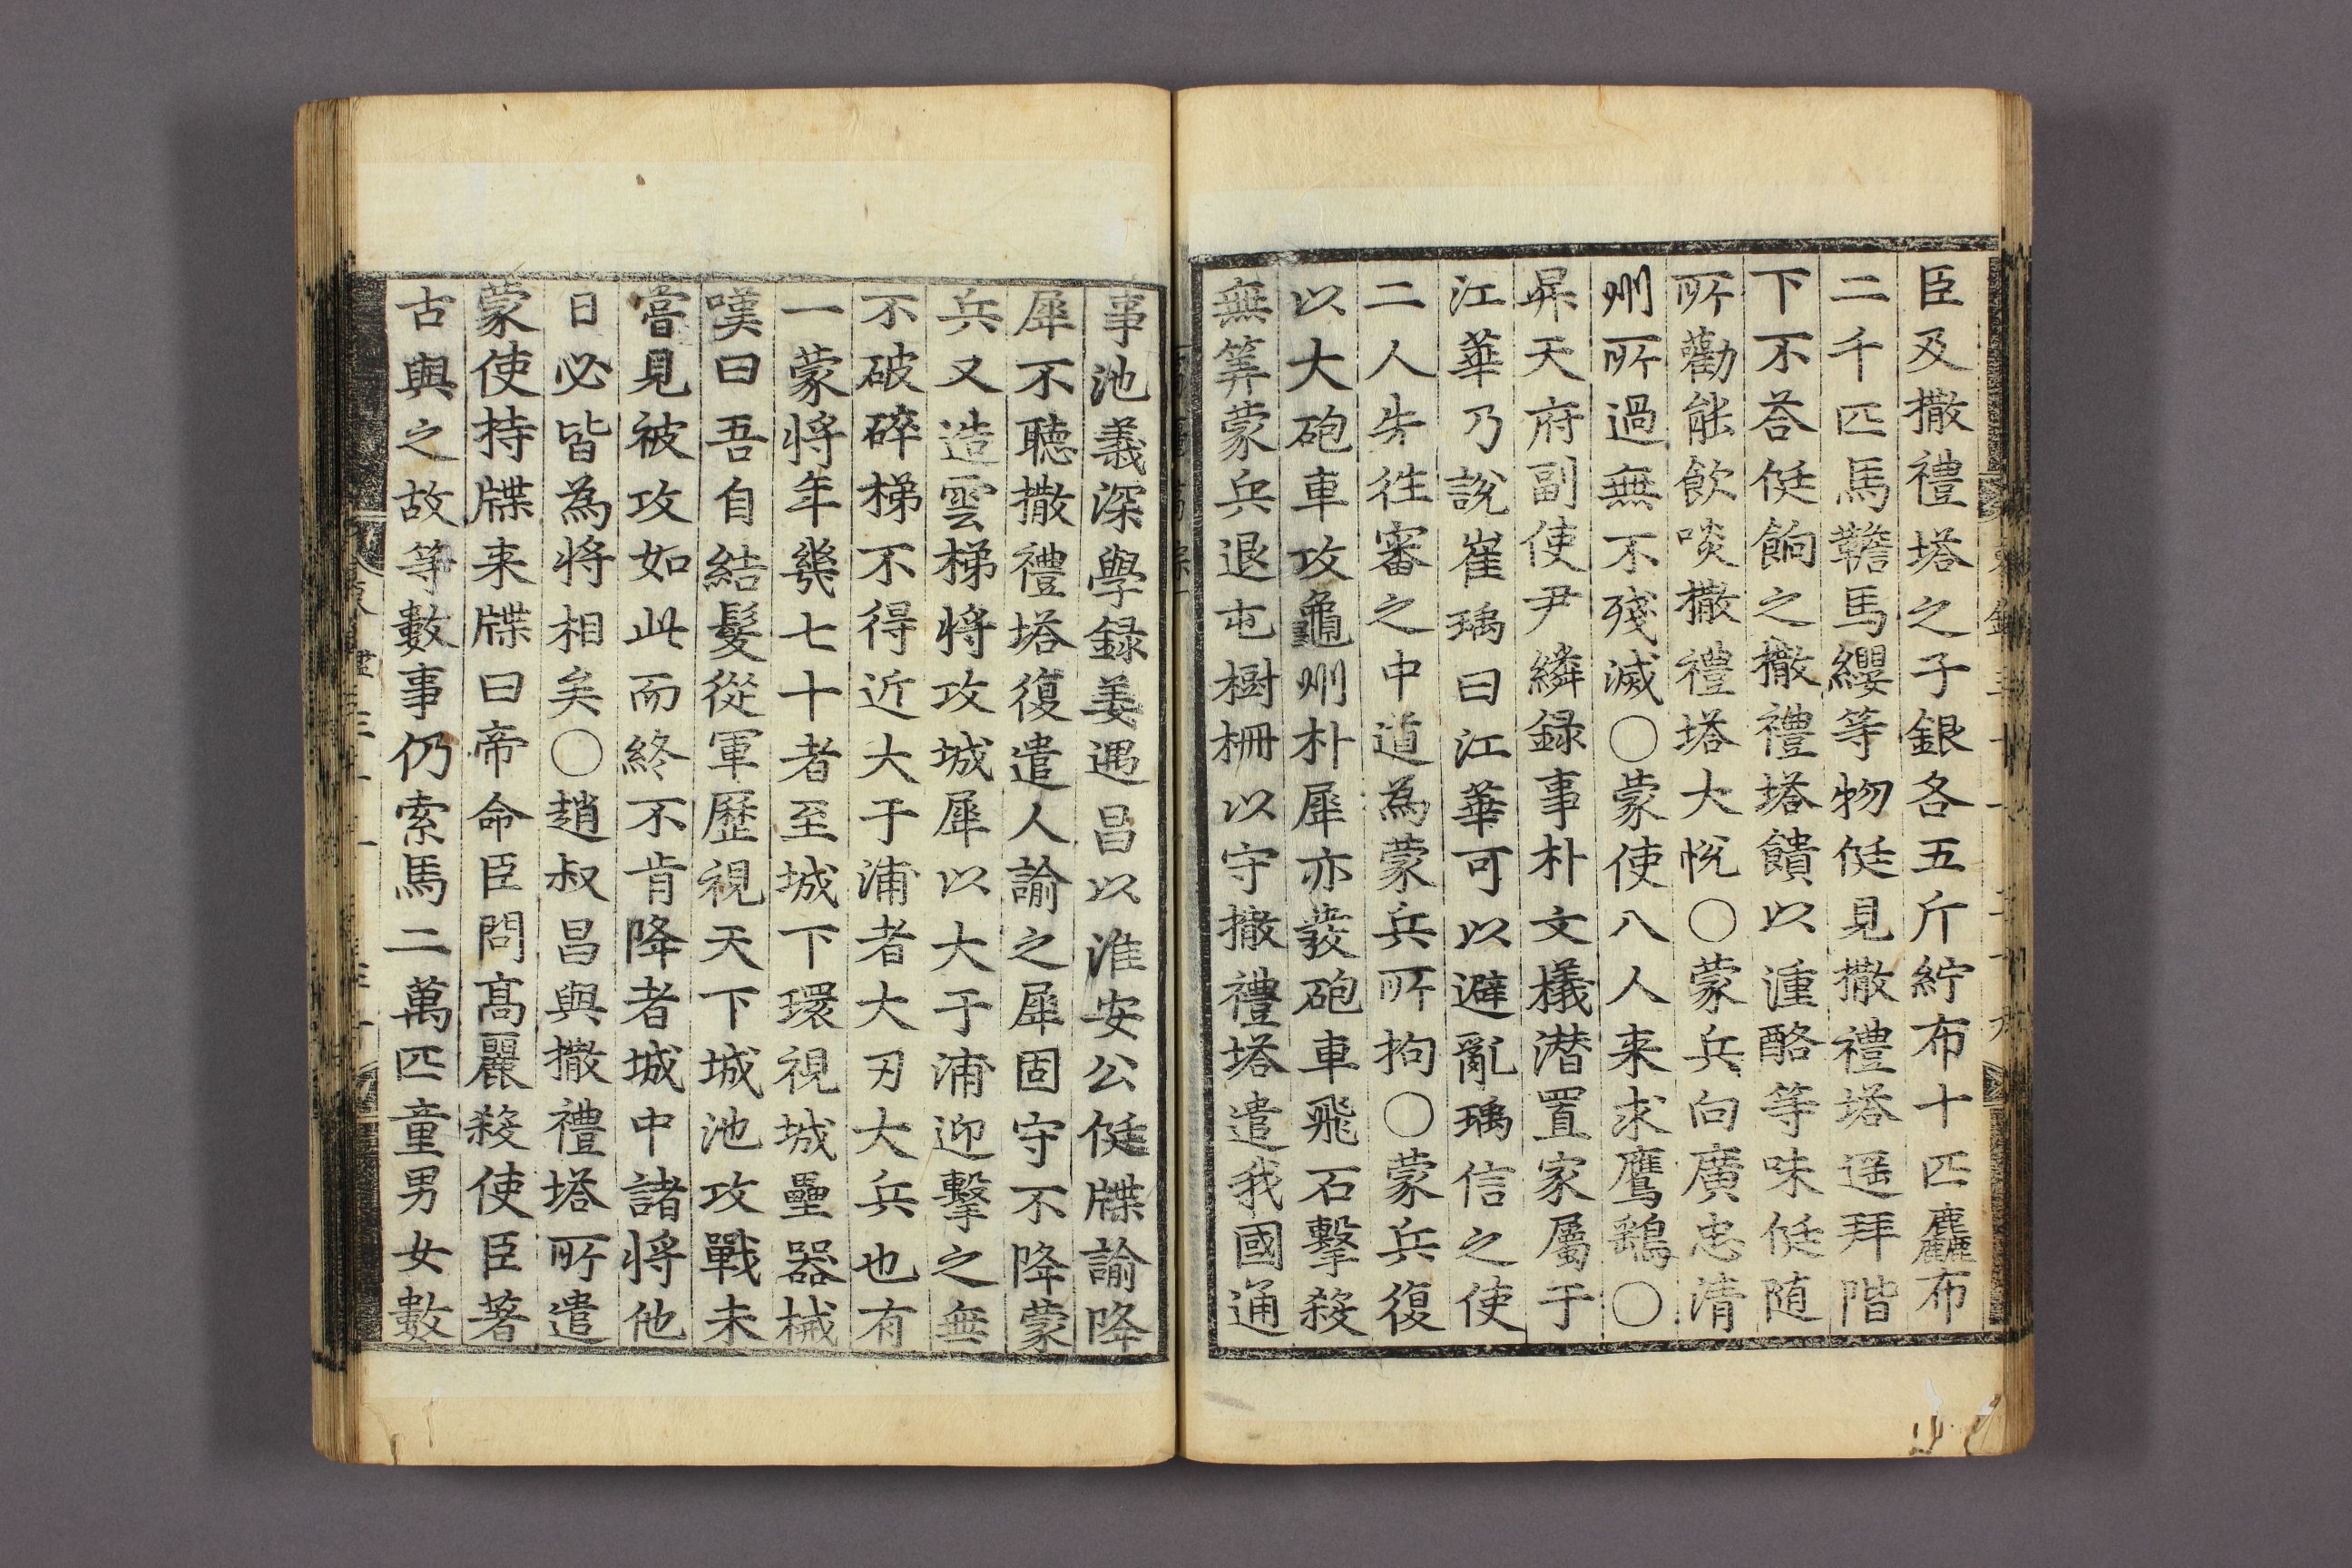 臣及撒禮塔之子銀各五斤紵布十匹麤布
二千匹馬韂馬纓等物侹見撒禮塔遥拜階
下不荅侹餉之撒禮塔饋以湩酪等味侹随
所勸能飲啖撒禮塔大悅〇蒙兵向廣忠清
州所過無不殘滅〇蒙使八人来求鷹鷂〇
昇天府副使尹繗録事朴文檥潜置家屬于
江華乃說崔瑀曰江華可以避亂瑀信之使
二人先徃審之中道為蒙兵所拘〇蒙兵復
以大砲車攻龜州朴犀亦發砲車飛石擊殺
無筭蒙兵退屯樹柵以守撒禮塔遣我國通
事池義深學録姜遇昌以淮安公侹牒諭降
犀不聽撒禮塔復遣人諭之犀固守不降蒙
兵又造雲梯將攻城犀以大于浦迎擊之無
不破碎梯不得近大于浦者大刃大兵也有
一蒙將年幾七十者至城下環視城壘器械
嘆曰吾自結髮從軍歷視天下城池攻戰未
嘗見被攻如此而終不肯降者城中諸將他
日必皆為將相矣〇趙叔昌與撒禮塔所遣
蒙使持牒来牒曰帝命臣問髙麗殺使臣著
古與之故等數事仍索馬二萬匹童男女數